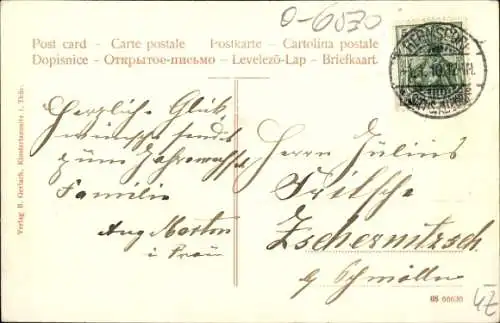 O-6030
Post card - Carte postale - Postkarte - Cartolina postale
Dopisnice - Открытое-письмо - Levelező-Lap - Briefkaart
Herzliche Glück
wünsche sendet
zum Jahreswechsel
Familie
Aug
Herrn Julius
Fritsche
Zschernitzsch
b/ Schmölln
Verlag R. Gerlach, Klosterlausnitz i. Thür.